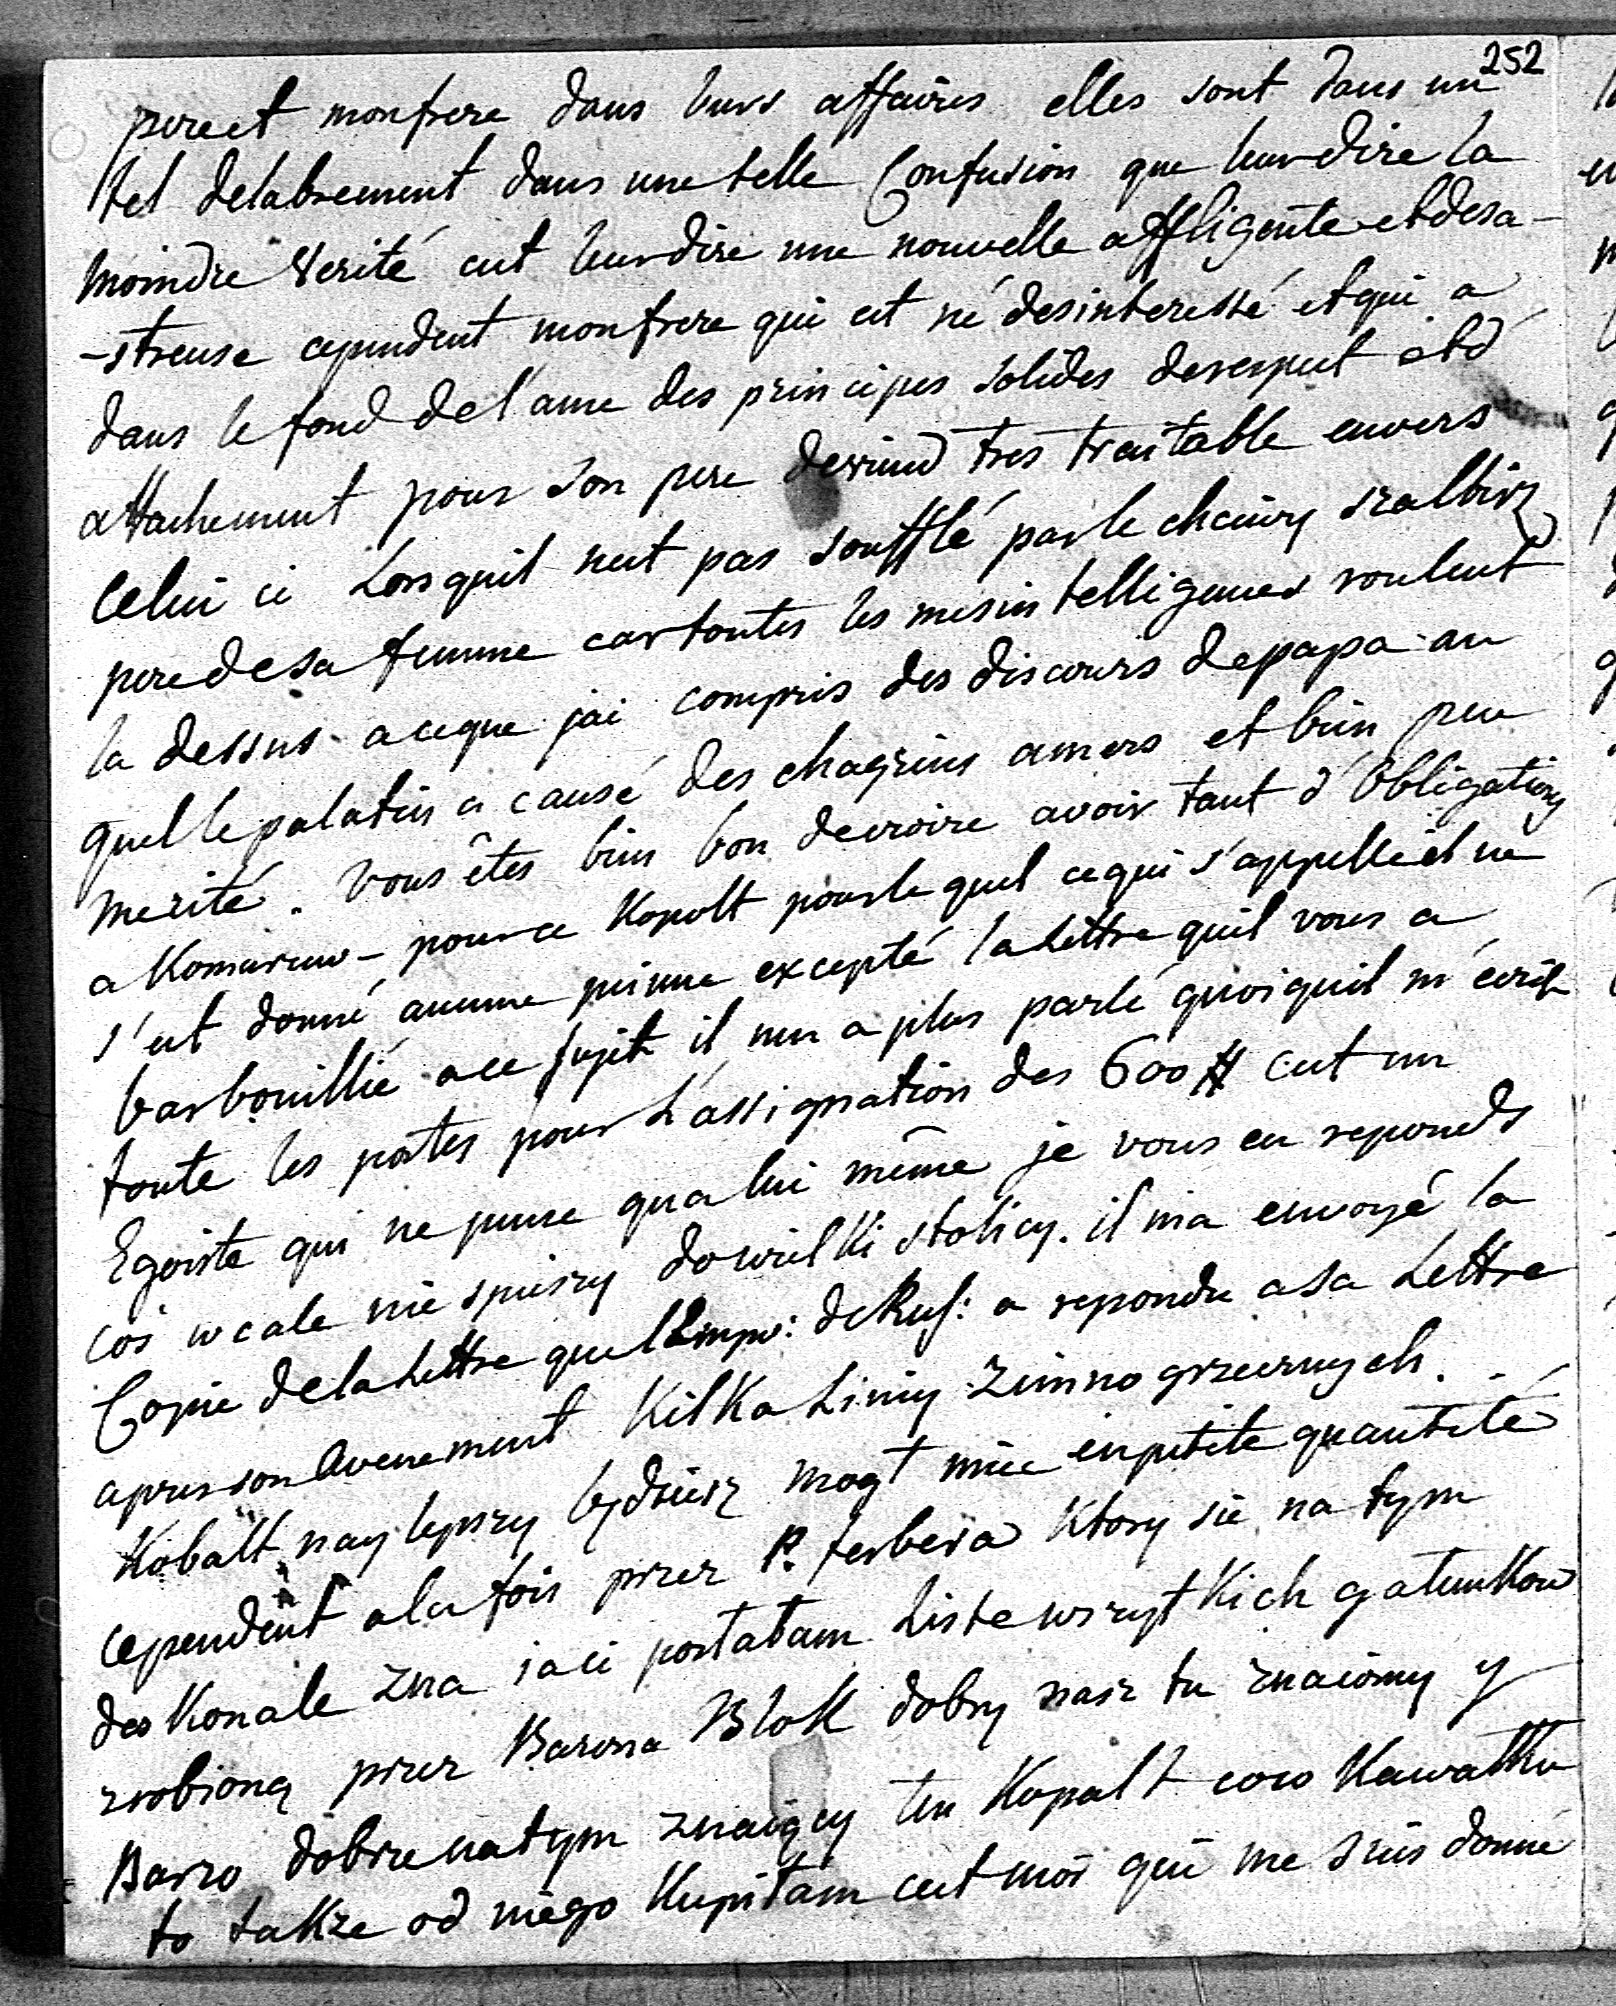 252
pere et mon frere dans leurs affaires elles sont dans un
tel delabrement dans une telle Confusion que leur dire la
moindre Verité est leur dire une nouvelle affligente et desa-
-streuse cependent mon frere qui est né desinteressé et qui a
dans le fond de l'ame des principes solides de respect et d'
attachement pour son pere deviend tres traitable envers
Celui ci Lorsquil nest pas soufflé par le choiny szalbirz
pere de sa femme car toutes les mesintelligences roulent
la dessus a ce que jai compris des discours de papa au
quel le palatin a causé des chagrins amers et bien peu
merité. Vous êtes bien bon de croire avoir tant d'Obligations
a Komaruw - pour ce Kopolt pour le quel ce qui s'appelle il ne
s'est donné aucune peinne excepté la Lettre quil vous a
barbouillié a ce sujet il nen a plus parlé quoiquil m'écrit
toute les postes pour L'assignation des 600 # cest un
Egoiste qui ne pense qua lui même je vous en reponds
cos wcale nie spieszy do wielki stolicy. il m'a envoyé la
Copie de la Lettre que l'Emper: de Rus: a repondu a sa Lettre
apres son Avenement KilKa Liniy zimno grzecznych.
Kobalt naylepszy będziesz mogł miec en petite quantité
cependent a la fois przez P. ferbera Ktory sie na tym
dosKonale zna ia ci posłałam Liste wszytKich gatunKow
zrobioną przez Barona BloK dobry nasz tu znaiomy y
Barzo dobrze na tym znaiący ten Kopalt coco KawałKu
to takze od niego Kupiłam cest moi qui me suis donné